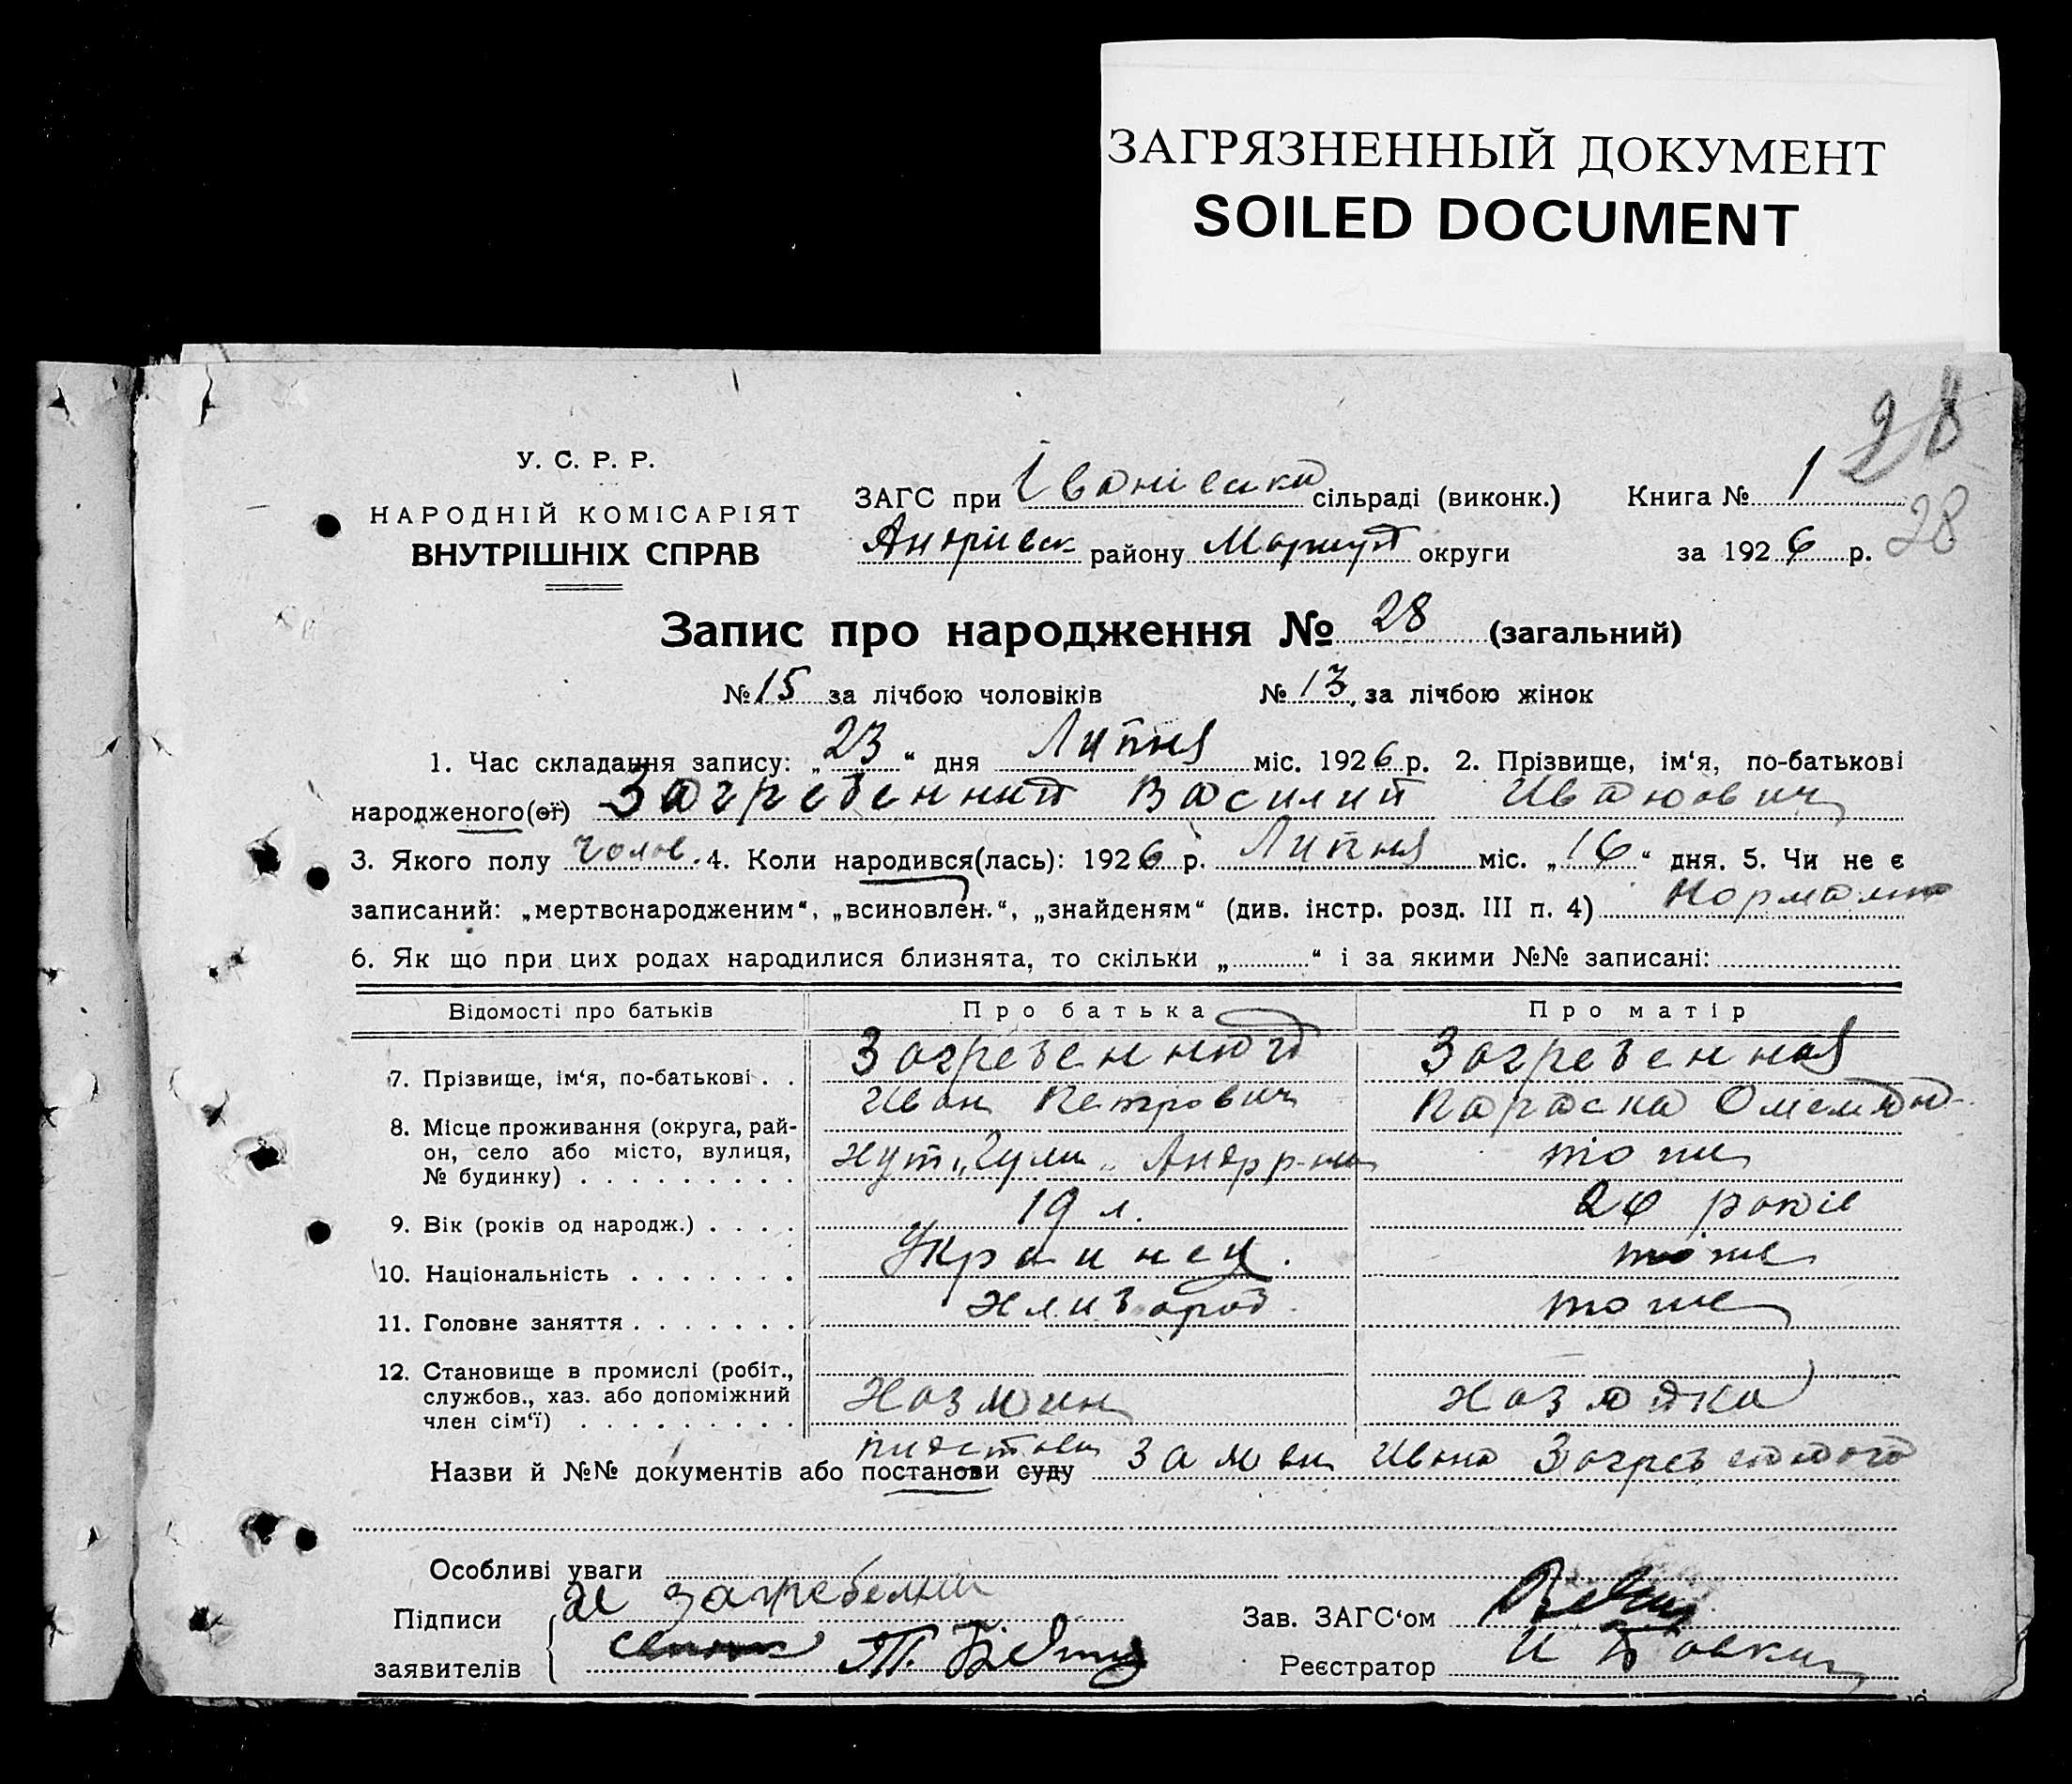 ЗАГРЯЗНЕННЫЙ ДОКУМЕНТ
SOILED DOCUMENT
28
У. С. Р. Р.
НАРОДНІЙ КОМІСАРІЯТ
ВНУТРІШНІХ СПРАВ
ЗАГС при Іванівська сільраді (виконк.) Книга № 1
район у округи за 1926 р. 28
Запис про народження № 28 (загальний)
№ 15 за лічбою чоловіків № 13 за лічбою жінок
1. Час складання запису: „23“ дня Липня міс. 1926 р. 2. Прізвище, ім‘я, по-батькові
народженого(ої) Загребенний Василий
3. Якого полу Чолов. 4. Коли народився(лась): 1926 р. Липня міс. „16“ дня. 5. Чи не є
записаний: „мертвонародженим“, „всиновлен.“, „знайденям“ (див. інстр. розд. III п. 4)
6. Як що при цих родах народилися близнята, то скільки „ “ і за якими №№ записані:
Відомості про батьків Про батька Про матір
7. Прізвище, ім‘я, по-батькові Загребенний Загребенная
Иван Петрович Параска
8. Місце проживання (округа, рай-
он, село або місто, вулиця, хут. тоже
№ будинку)
9. Вік (років од народж.) 19 л. років
10. Національність Украинец. тоже
11. Головне заняття Хлибороб. тоже
12. Становище в промислі (робіт.,
службов., хаз. або допоміжний Хозяин Хозяйка
член сім‘ї)
Назви й №№ документів або постанови суду Ивана
Особливі уваги
Підписи Загребелний Зав. ЗАГС‘ом
заявителів Реєстратор